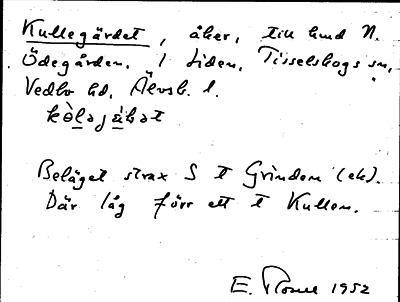 Kullegärdet, åker, till hmd N.
Ödegården. i Liden, Tisselskogs sn,
Vedbo hd, Älvsb. l.
Beläget strax S t Grinden (ek).
Där låg förr ett t Kullen.
E. 1952